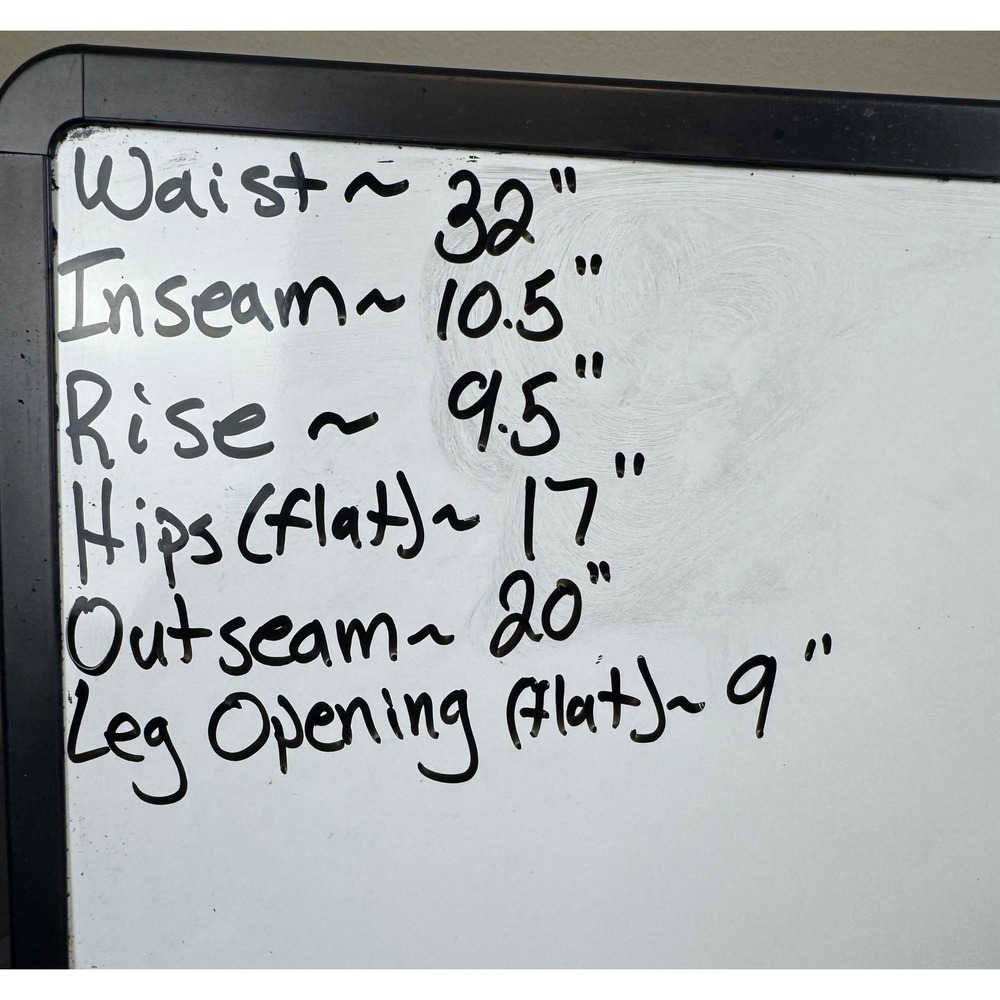 Waist ~ 32"
Inseam ~ 10.5"
Rise ~ 9.5"
Hips (flat) ~ 17"
Outseam ~ 20"
Leg Opening (flat) ~ 9"